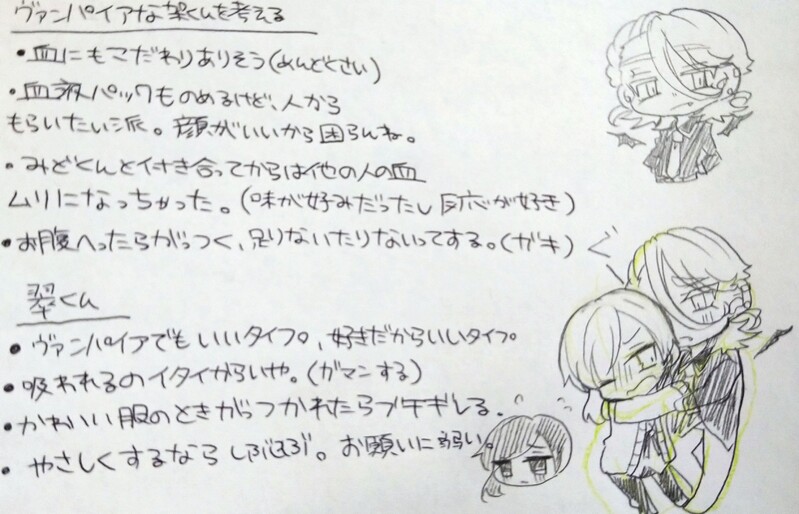 ヴァンパイアな架くんを考える
・血にもこだわりありそう(めんどくさい)
・血液パックものめるけど、人から
もらいたい派。顔がいいから困らんね。
・みどくんと付き合ってからは他の人の血
ムリになっちゃった。(味が好みだったし反応が好き)
・お腹へったらがっつく、足りないたりないってする。(ガキ)
ぐ
翠くん
・ヴァンパイアでもいいタイプ、好きだからいいタイプ
・吸われるのイタイからいや。(ガマンする)
・かわいい服のときがっつかれたらブチギレる.
・やさしくするならしぶしぶ。お願いに弱い。